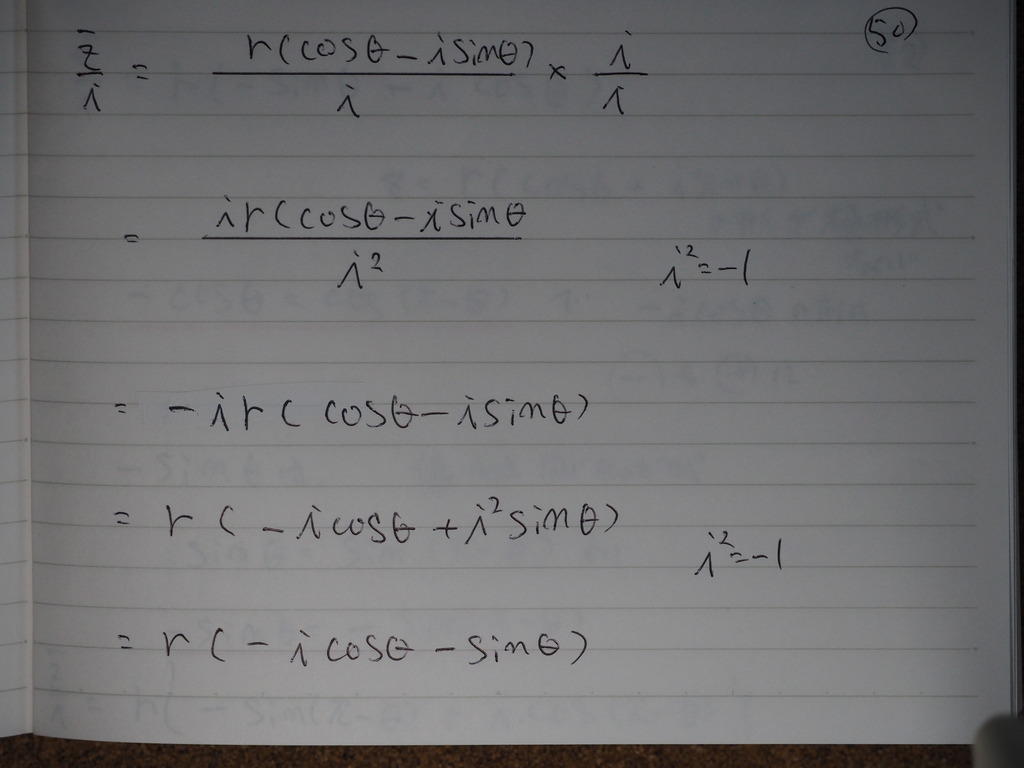 50
z̄/i = r(cosθ - i sinθ)/i × i/i
= ir(cosθ - i sinθ/i² i² = -1
= -ir(cosθ - i sinθ)
= r(-i cosθ + i² sinθ) i² = -1
= r(-i cosθ - sinθ)